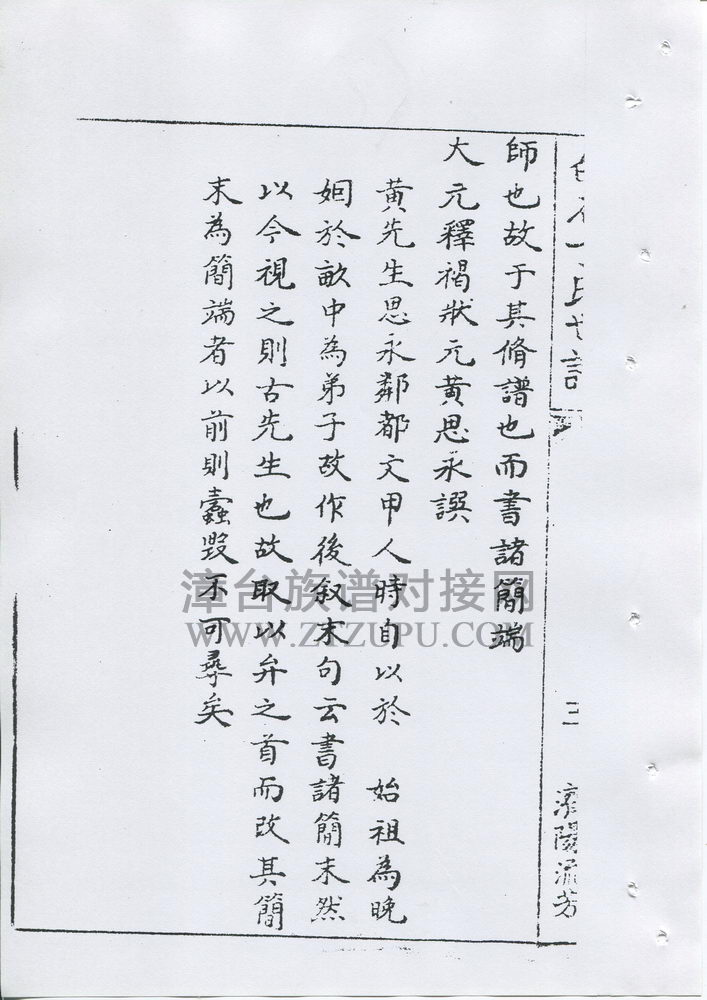 師也故于其脩譜也而書諸簡端
大元釋褐狀元黄思永譔
黄先生思永鄰都文甲人時自以於 始祖為晚
姻於畝中為弟子故作後叙末句云書諸簡末然
以今視之則古先生也故取以弁之首而改其簡
末為簡端者以前則蠹毀不可尋矣
三
流芳
漳台族谱对接网
WWW.ZTZUPU.COM